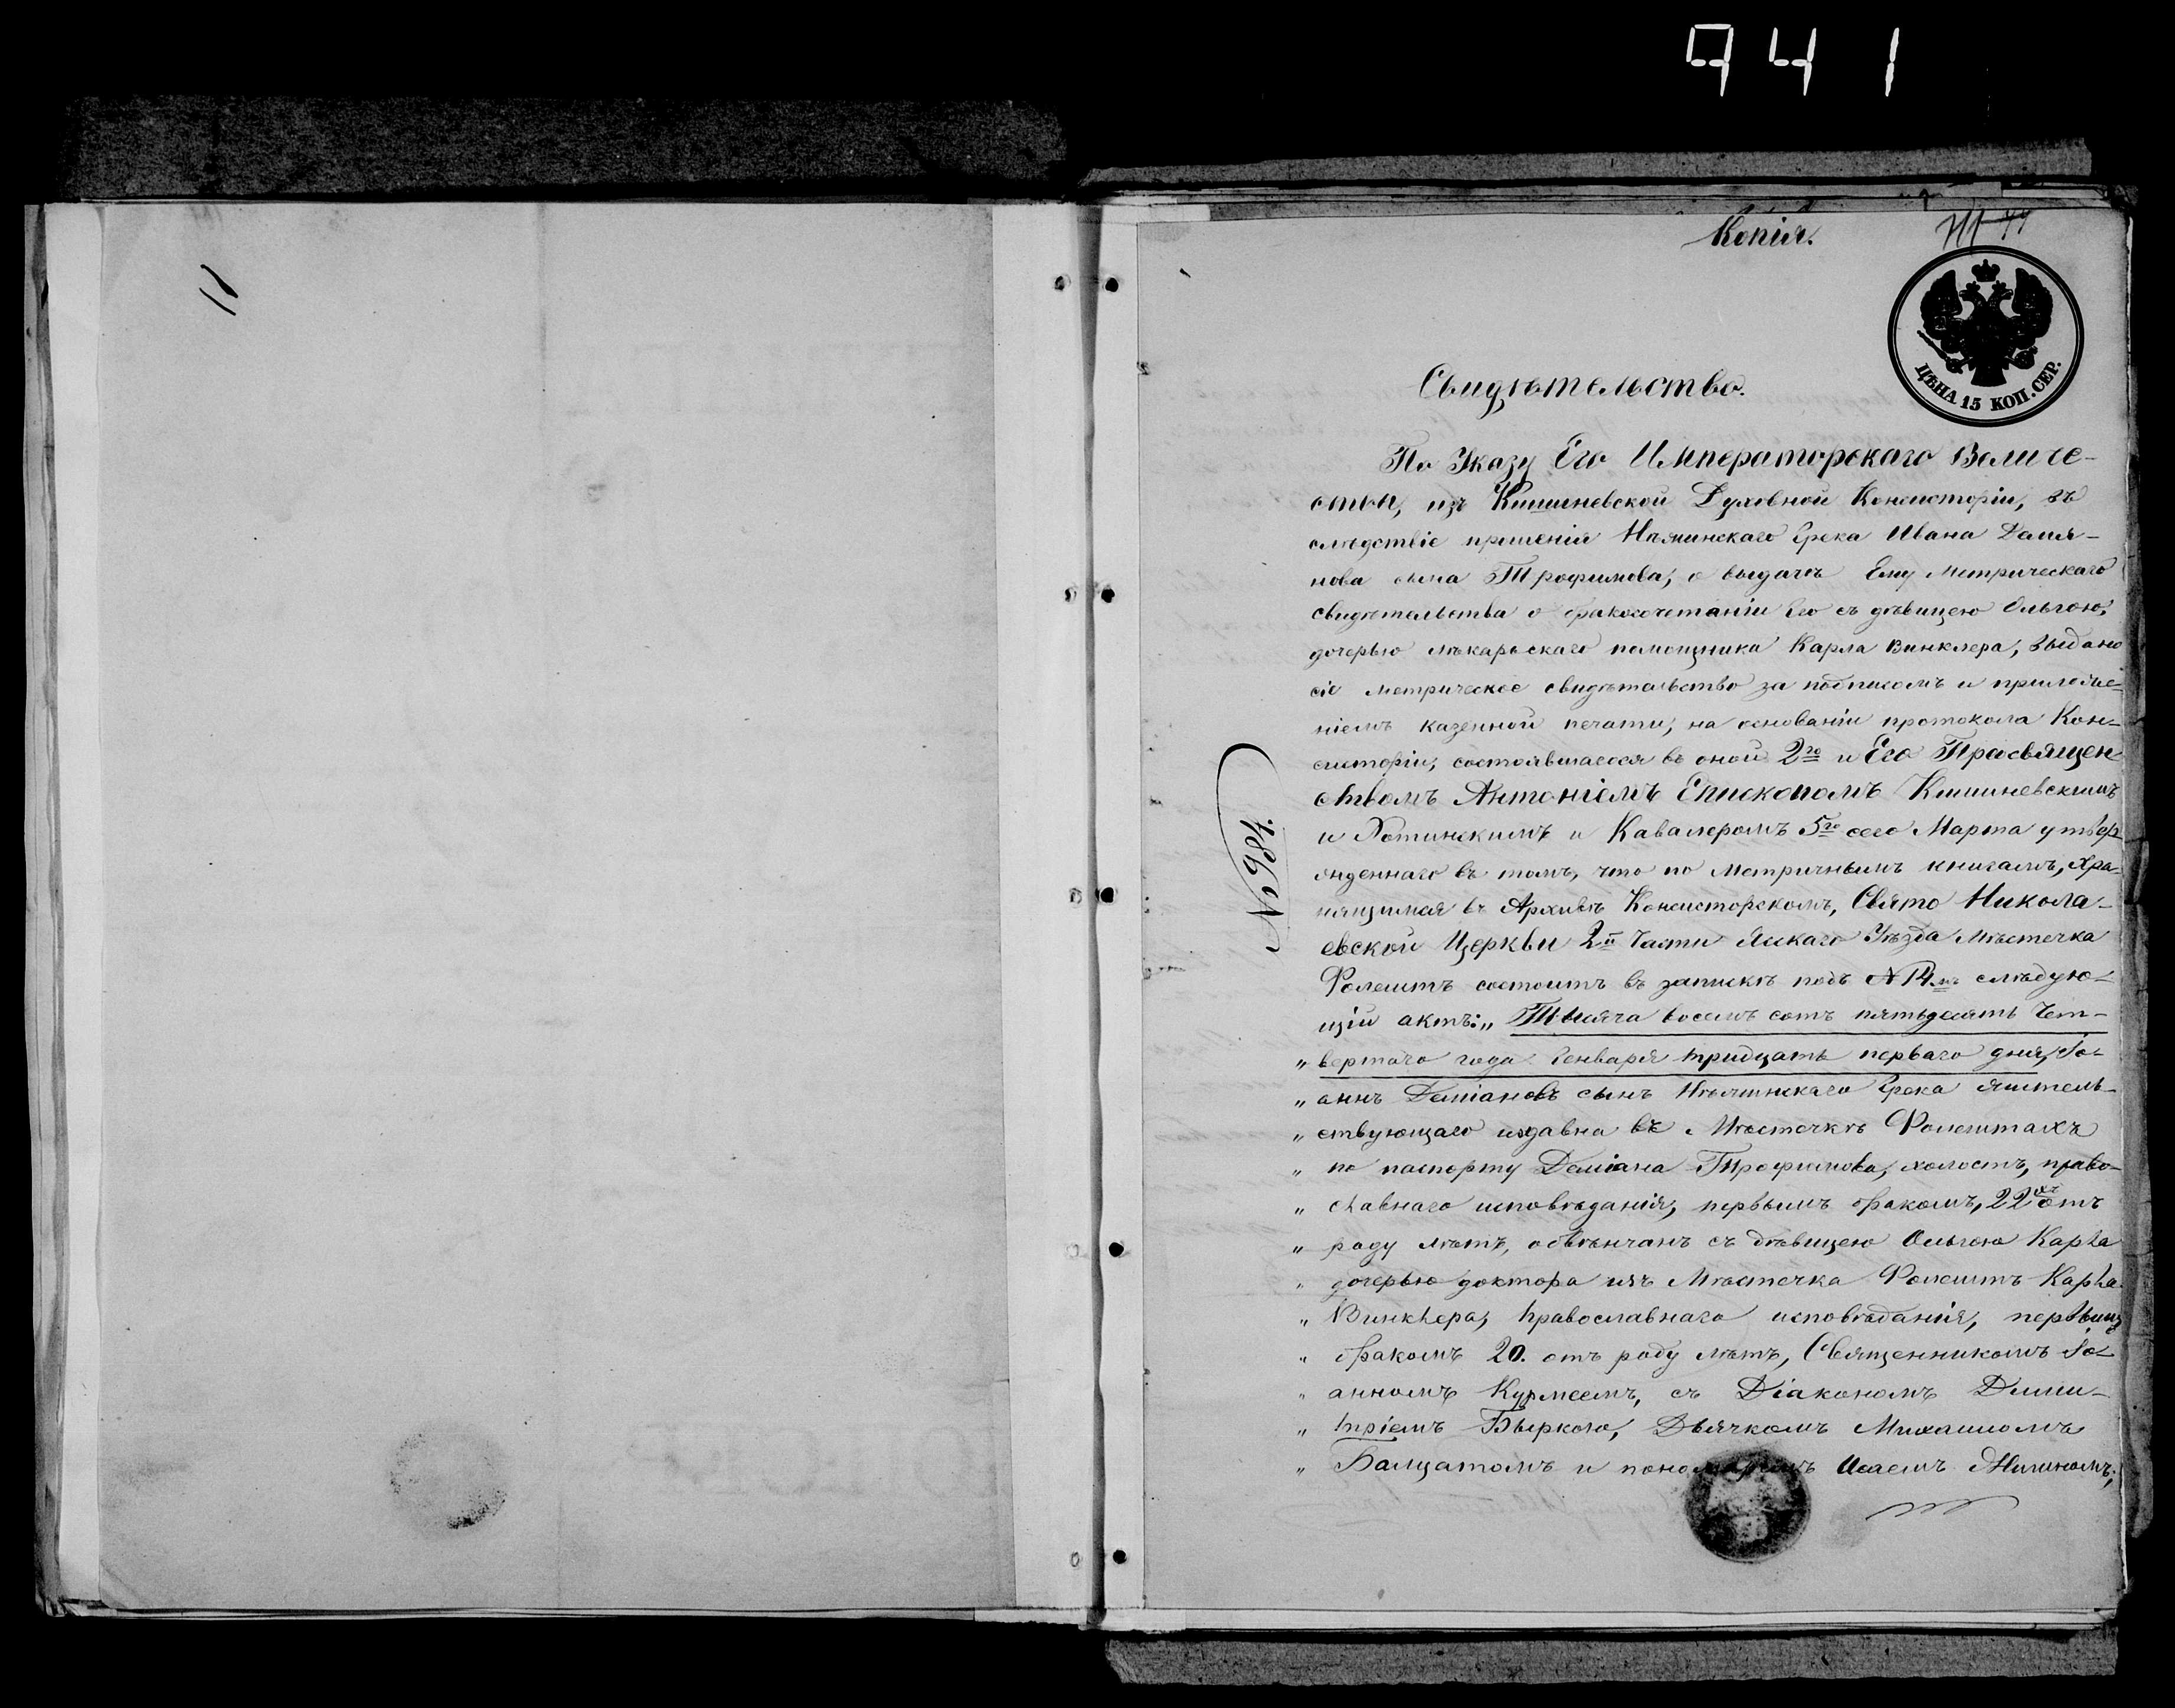 941
Копія.
ЦѢНА 15 КОП. СЕР.
Свидѣтельство.
По Указу Его Императорскаго Величе-
ства, изъ Кишиневской Духовной Консисторіи, въ
слѣдствіе прошенія Нѣжинскаго Грека Ивана Даміа-
нова сына Трофимова, о выдачѣ Ему метрическаго
свидѣтельства о бракосочетаніи Его съ дѣвицею Ольгою,
дочерью лѣкарьскаго помощника Карла Винклера, выдано
сіе метрическое свидѣтельство за подписомъ и приложе-
ніемъ казенной печати, на основаніи протокола Кон-
систоріи, состоявшагося въ оной 2го и Его Преосвящен
ствомъ Антоніемъ Епископомъ Кишиневскимъ
и Хотинскимъ и Кавалеромъ 5го сего Марта утвер-
жденнаго въ томъ, что по Метричнымъ книгамъ, хра-
нящимся въ Архивѣ Консисторскомъ, Свято Никола-
евской Церкви 2й Части Яскаго Уѣзда Мѣстечка
Фолештъ состоитъ въ запискѣ подъ № 14мъ слѣдую-
щій актъ: „Тысяча восемъ сотъ пятьдесятъ Чет-
„ вертаго года Генваря тридцать перваго дня, Іо-
„ аннъ Даміановъ сынъ Нѣжинскаго Грека жител-
„ ствующаго издавна въ Мѣстечкѣ Фолештахъ
„ по паспорту Деміана Трофимова, холостъ, право-
„ славнаго исповѣданія, первымъ бракомъ, 22хъ отъ
„ роду лѣтъ, обвѣнчанъ съ дѣвицею Ольгою Карла
„ дочерью доктора изъ Мѣстечка Фолештъ Карла
„ Винклера, православнаго исповѣданія, первымъ
„ бракомъ 20. отъ роду лѣтъ, Священникомъ Іо-
„ анномъ Курмеемъ, съ Діакономъ Дими-
„ тріемъ Быркою, Дьячкомъ Михаиломъ
„ Балцатомъ и пономаремъ Исаемъ
№ 984.